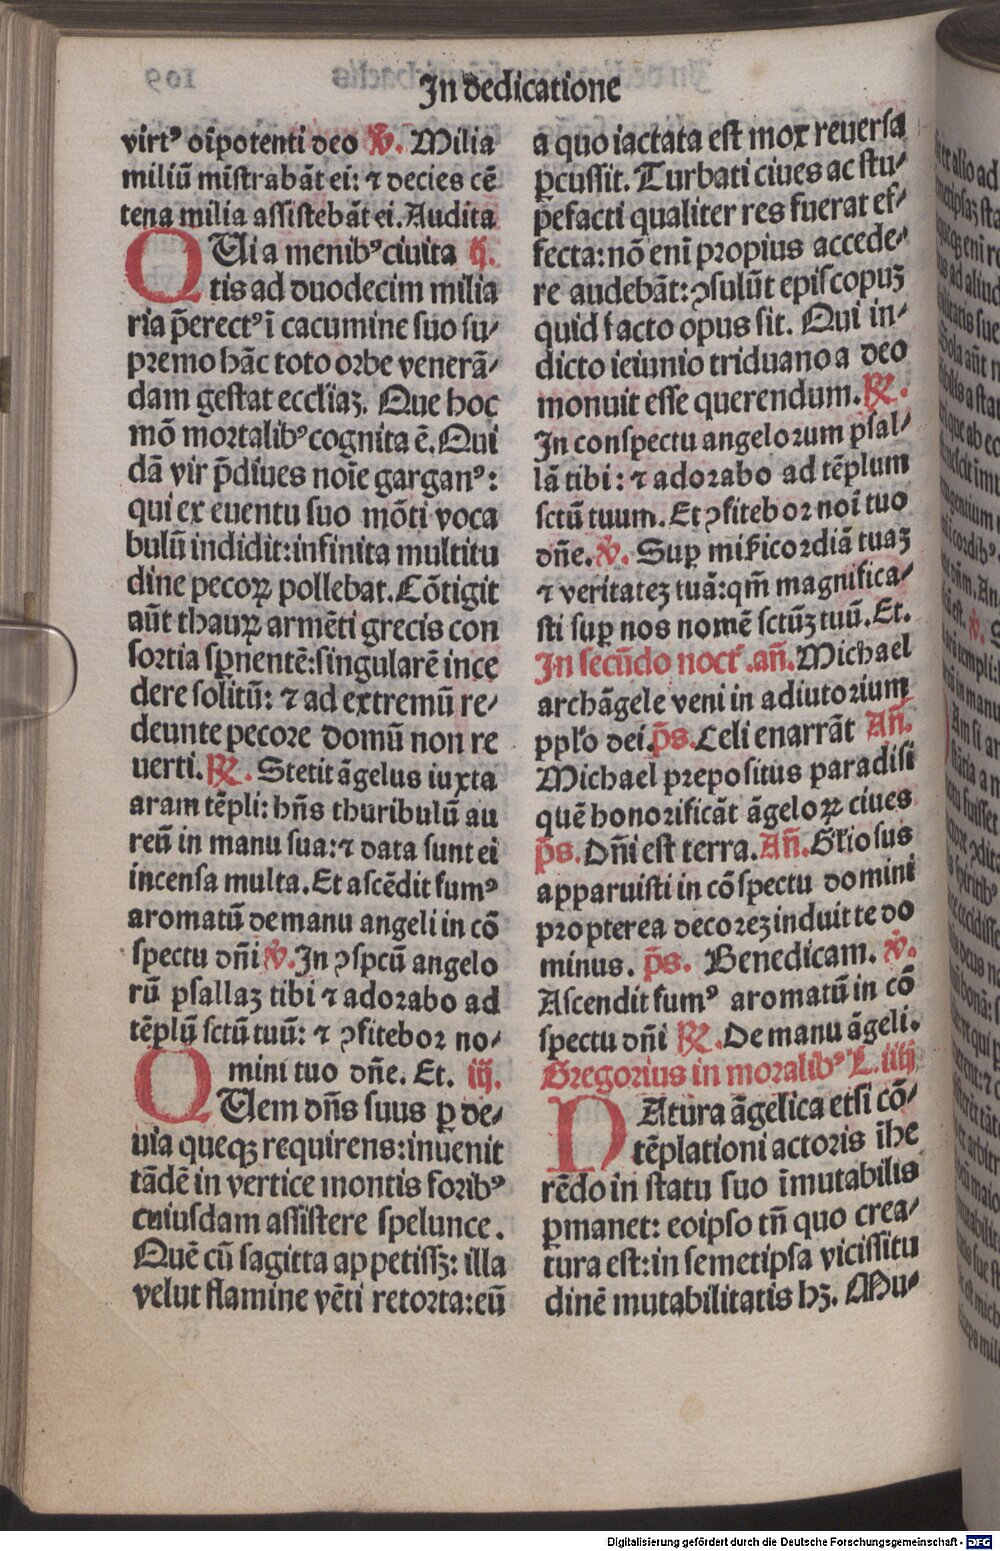 In dedicatione
virtꝰ oīpotenti deo ꝟ. Milia
miliū mīstrabāt ei: ⁊ decies cē
tena milia assistebāt ei. Audita
QUia menibꝰ ciuita ij.
tis ad duodecim milia
ria p̄erectꝰ ī cacumine suo su⸗
premo hāc toto orbe venerā⸗
dam gestat eccl̄iaȝ. Que hoc
mō mortalibꝰ cognita ē. Qui
dā vir p̄diues noīe garganꝰ:
qui ex euentu suo mōti voca
bulū indidit: infinita multitu
dine pecoꝝ pollebat. Cōtigit
aūt thauꝝ armēti grecis con
sortia sꝑnentē: singularē ince
dere solitū: ⁊ ad extremū re⸗
deunte pecore domū non re
uerti. ℞. Stetit āgelus iuxta
aram tēpli: hn̄s thuribulū au
reū in manu sua: ⁊ data sunt ei
incensa multa. Et ascēdit fumꝰ
aromatū de manu angeli in cō
spectu dn̄i ꝟ. In ꝯspcū angelo
rū psallaȝ tibi ⁊ adorabo ad
tēplū sctū tuū: ⁊ ꝯfitebor no⸗
mini tuo dn̄e. Et. iij.
QUem dn̄s suus ꝑ de⸗
uia queqȝ requirens: inuenit
tādē in vertice montis foribꝰ
cuiusdam assistere spelunce.
Quē cū sagitta appetissȝ: illa
velut flamine vēti retorta: eū
a quo iactata est mox reuersa
ꝑcussit. Turbati ciues ac stu⸗
pefacti qualiter res fuerat ef⸗
fecta: nō enī propius accede⸗
re audebāt: ꝯsulūt episcopuȝ
quid facto opus sit. Qui in⸗
dicto ieiunio triduano a deo
monuit esse querendum. ℞.
In conspectu angelorum psal⸗
lā tibi: ⁊ adorabo ad tēplum
sctū tuum. Et ꝯfitebor noī tuo
dn̄e. ꝟ. Suꝑ mīicordiā tuaȝ
⁊ veritateȝ tuā: qm̄ magnifica⸗
sti suꝑ nos nomē sctūȝ tuū. Et.
In secūdo noct̄. an̄. Michael
archāgele veni in adiutorium
ppl̄o dei. p̄s. Celi enarrāt An̄.
Michael prepositus paradisi
quē honorificāt āgeloꝝ ciues
p̄s. Dn̄i est terra. An̄. Gl̄iosus
apparuisti in cōspectu domini
propterea decoreȝ induit te do
minus. p̄s. Benedicam. ꝟ.
Ascendit fumꝰ aromatū in cō
spectu dn̄i ℞. De manu āgeli.
Gregorius in moralibꝰ L. iiij
NAtura āgelica etsi cō⸗
tēplationi actoris īhe
rēdo in statu suo īmutabilis
ꝑmanet: eo ipso tn̄ quo crea⸗
tura est: in semetipsa vicissitu
dinē mutabilitatis hȝ. Mu⸗
Digitalisierung gefördert durch die Deutsche Forschungsgemeinschaft - DFG